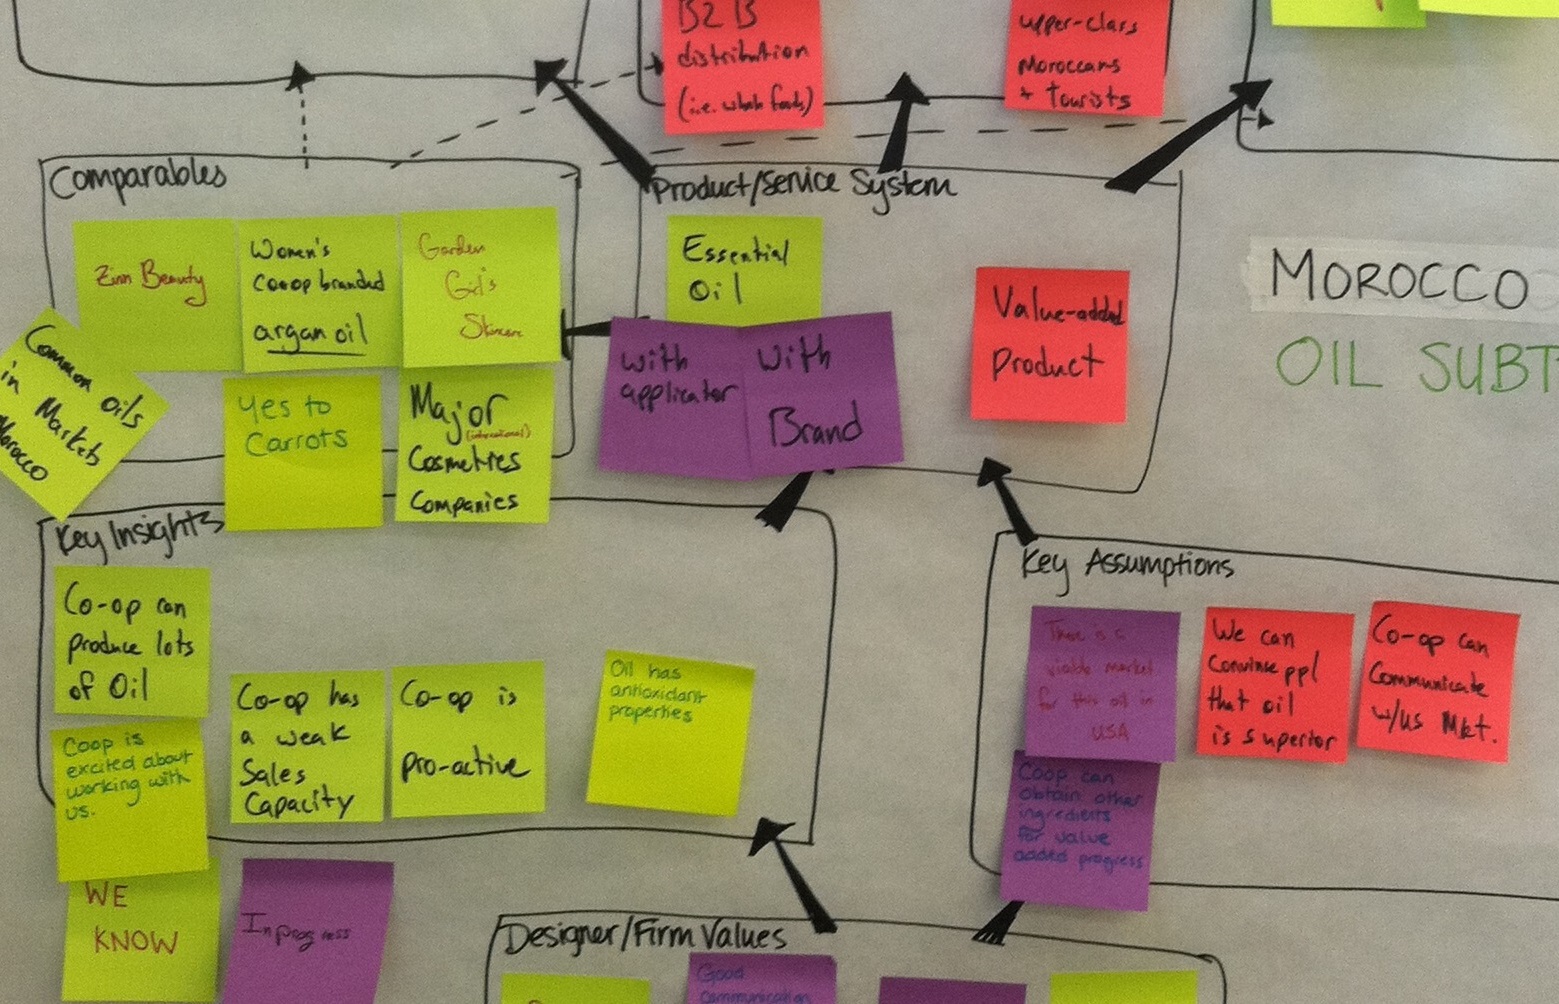 B2B
distribution
(i.e. whole foods)
upper-class
Moroccans
+ Tourists
Comparables
Zinn Beauty
Women's
Coop branded
argan oil
Garden
Girl's
Skincare
Common oils
in Markets
Morocco
Yes to
Carrots
Major
(international)
Cosmetics
Companies
Product/Service System
Essential
Oil
with
applicator
With
Brand
Value-added
Product
MOROCCO
OIL SUBT
Key Insights
Co-op can
produce lots
of Oil
Coop is
excited about
working with
us.
Co-op has
a weak
Sales
Capacity
Co-op is
pro-active
Oil has
antioxidant
properties
WE
KNOW
In progress
Key Assumptions
There is a
viable market
for this oil in
USA
We can
Convince ppl
that oil
is superior
Co-op can
Communicate
w/us Mkt.
Coop can
obtain other
ingredients
for value
added progress
Designer/Firm Values
Good
Communication